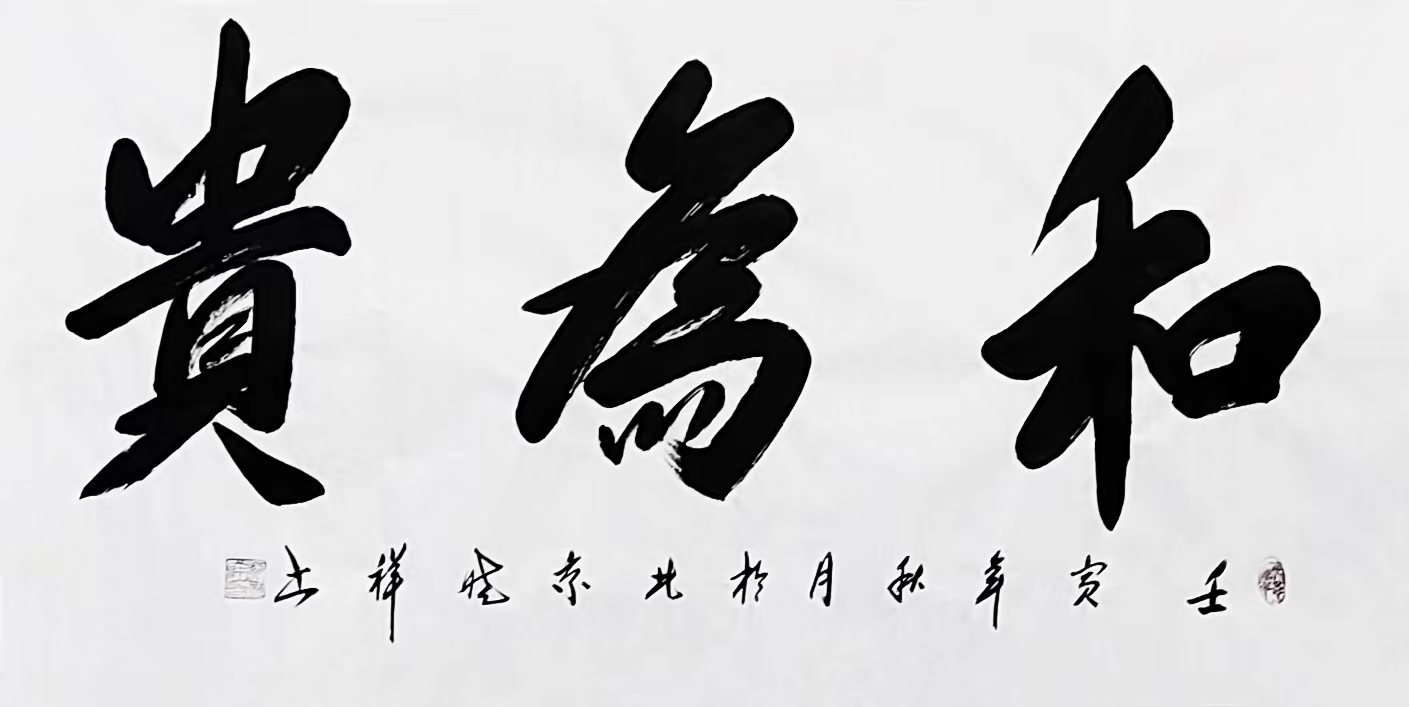 和為貴
壬寅年秋月於北京曉祥书